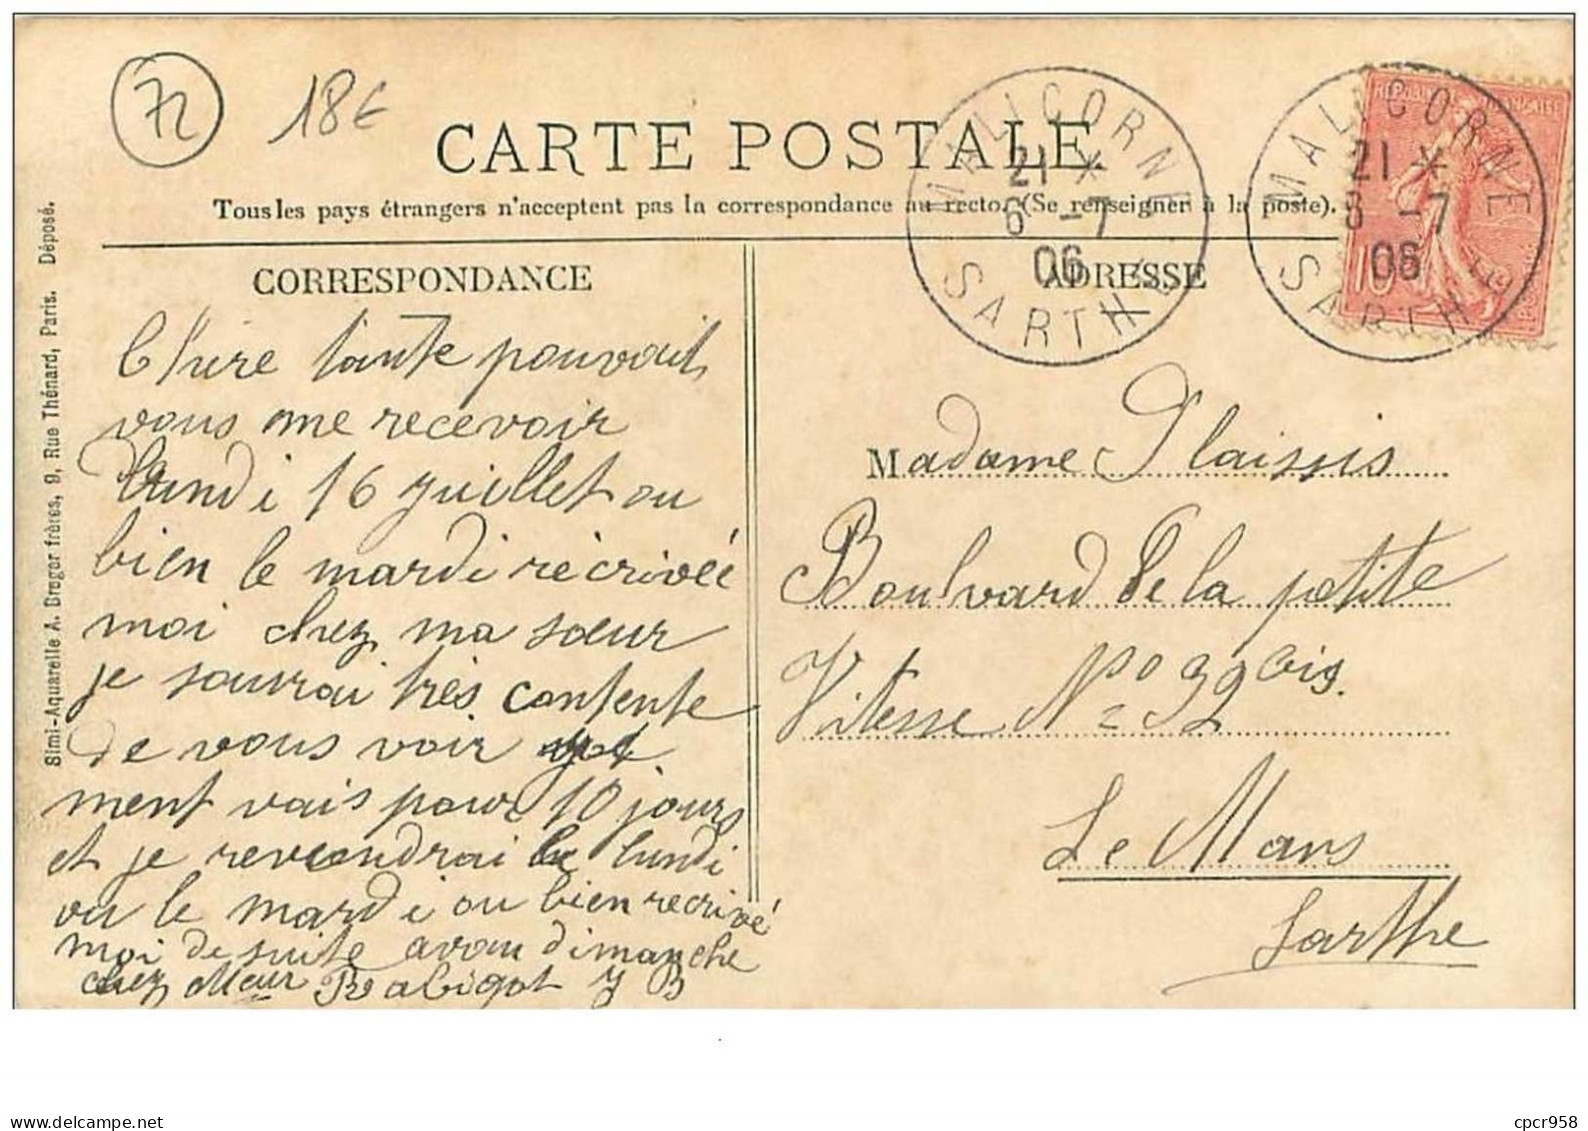 72
18€
CARTE POSTALE.
Tous les pays étrangers n'acceptent pas la correspondance au recto. (Se renseigner à la poste).
MALICORNE
21 *
6 -7
06
SARTHE
MALICORNE
21 *
6 -7
06
SARTHE
REPUBLIQUE FRANÇAISE
10
CORRESPONDANCE
Chère tante pouvait
vous me recevoir
lundi 16 juillet ou
bien le mardi récrivéé
moi chez ma sœur
je saurai très contente
de vous voir
ment vais pour 10 jours
et je reveondrai le lundi
ou le mardi ou bien recrivé
moi de suite avan dimanche
chez Meur Rabigot Y B
ADRESSE
Madame Plaissis
Boulvard de la petite
Vitesse No 92 bis.
Le Mans
Sarthe
Simi-Aquarelle A. Breger frères, 9, Rue Thénard, Paris. Déposé.
cpcr958